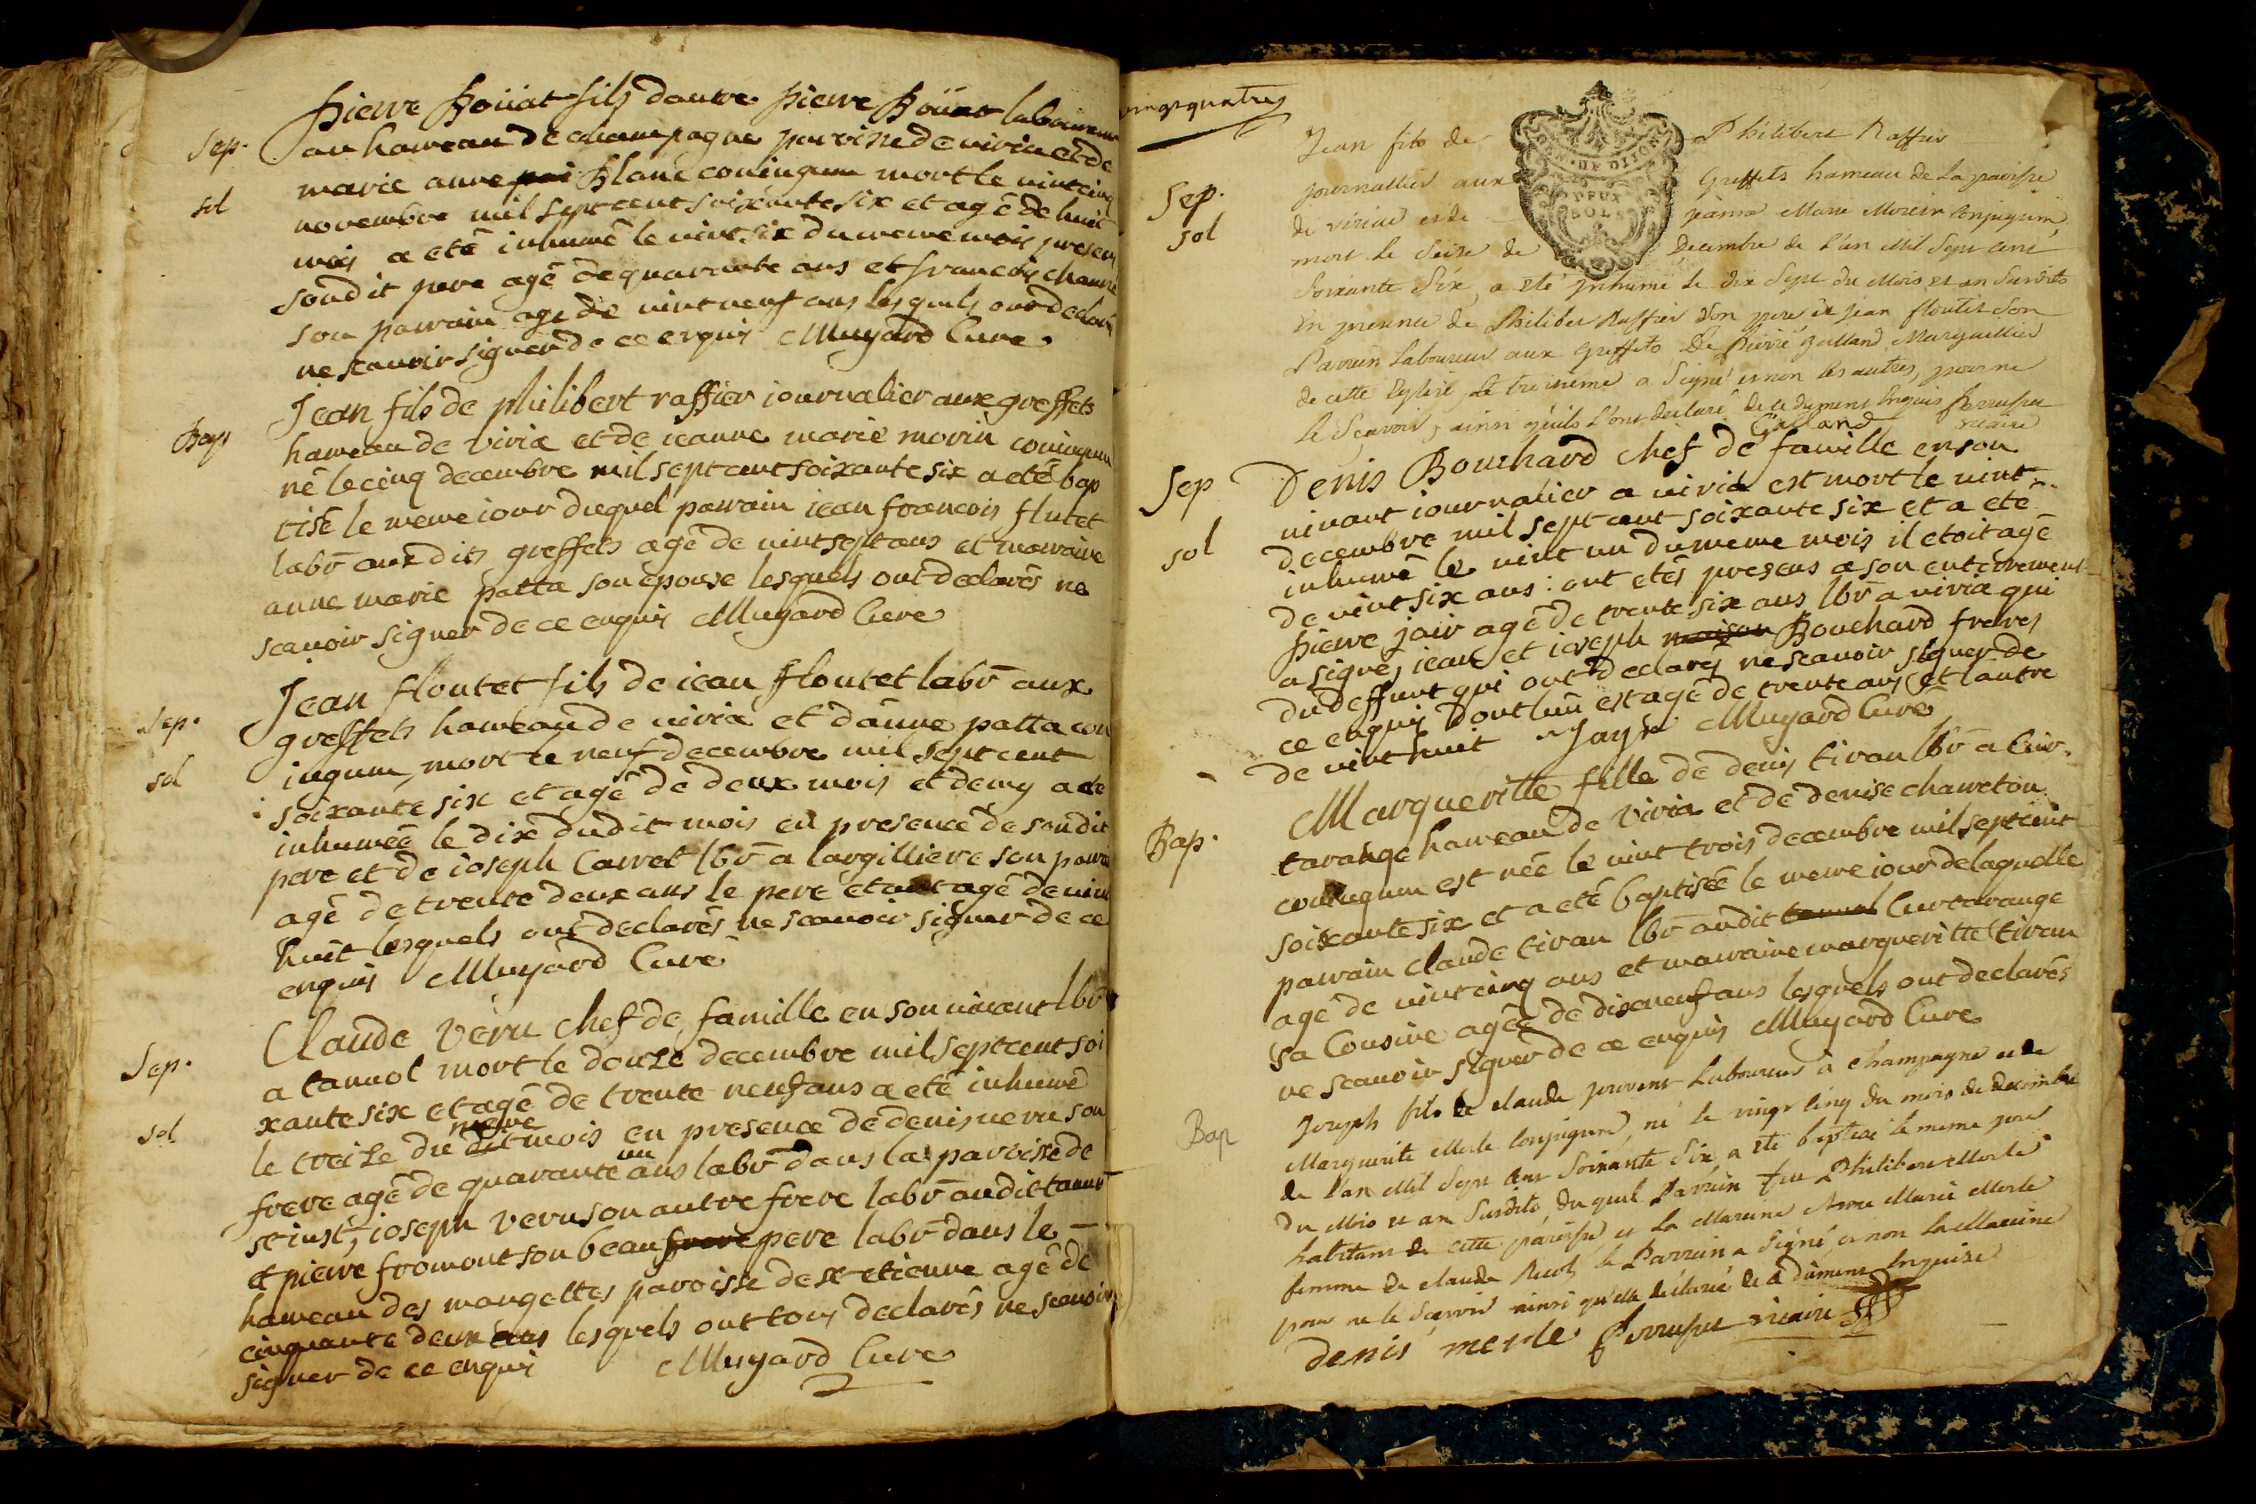 Sep.
sol
Pierre Boüat fils dautre Pierre Boüat laboureur
au hameau de champagne parroisse de viria et de
marie anne Blanc coniugum mort le vintcinq
novembre mil sept cent soixante six et agé de huit
mois a eté inhumé le vint six du meme mois presens
soudit pere agé de quarante ans et francois
son parrain agé de vint neuf ans lesquels ont declaré
ne scavoir signer de ce enquis Muyard Curé
Bap
Jean fils de philibert raffier iournalier aux greffets
hameau de viria et de ieanne marie morin coniugum
né le cinq decembre mil sept cent soixante six a eté bap
tisé le meme iour duquel parrain iean francois flutet
labr aux dits greffets agé de vint sept ans et marraine
anne marie patta son épouse lesquels ont declarés ne
scavoir signer de ce enquis Muyard Curé
Sep.
sol
Jean floutet fils de iean floutet labr aux
greffets hameau de viria et d'anne patta con
iugum, mort le neuf decembre mil sept cent
soixante six et agé de deux mois et demy a eté
inhumée le dix dudit mois en presence de soudit
pere et de ioseph Carret lbr a largilliere son parrain
agé de trente deux ans le pere etant agé de vint
huit lesquels ont declarés ne scavoir signer de ce
enquis Muyard Curé
Sep.
sol
Claude veru chef de famille en son vivant lbr
a tannol mort le douze decembre mil sept cent soi
xante six et agé de trente neuf ans a eté inhumé
le treize du dit meme mois en presence de denis veru son
frere agé de quarante un ans labr dans la paroisse de
st iust, ioseph veru son autre frere labr audit tannol
et pierre fromont son beau frere pere labr dans le
hameau des mangettes paroisse de st etienne agé de
cinquante deux ans lesquels ont tous declarés ne scavoir
signer de ce enquis Muyard Curé
vingtquatres
GEN. DE DIJON
DEUX
SOLS
Sep.
sol
Jean fils de Philibert Raffier
journallier aux Greffets hameau de La paroisse
de viriac et de jeanne Marie Morin Conjugum,
mort le Seize de Decembre de L'an Mil Sept Cent
Soixante Six, a eté Inhumé le dix Sept du Mois et an Susdits
En presence de Philibert Raffier Son pere et Jean floutet Son
Parrein Laboureur aux Greffets De Pierre Galland Marguillier
de cette Eglise, Le troisieme a Signé et non les autres, pour ne
Le Scavoir, ainsi qu'ils L'ont declaré de ce dument Enquis
Galland vicaire
Sep
sol
Denis Bouchard chef de famille en son
vivant iournalier a viria est mort le vint
decembre mil sept cent soixante six et a eté
inhumé le vint un du meme mois il etoit agé
de vint six ans: ont etés presens a son enterrement
Pierre jair agé de trente six ans lbr a viria qui
a signé, iean et ioseph Bouchard freres
du deffunt qui ont declarés ne scavoir signer de
ce enquis dont lun est agé de trente ans et lautre
de vint huit Jayr Muyard Curé
Bap.
Margueritte fille de denis tiran lbr a Cur-
tarange hameau de viria et de denise chaureton
coniugum est née le vint trois decembre mil sept cent
soixante six et a eté baptisée le meme iour de laquelle
parrain claude tiran lbr audit tannol Curtarange
agé de vint cinq ans et marraine margueritte tiran
sa Cousine agée de dixneuf ans lesquels ont declarés
ne scavoir signer de ce enquis Muyard Curé
Bap
Joseph fils de claude jouvent Laboureur à Champagne et de
Marguerite Merle Conjugum, né le vingt Cinq du mois de Decembre
de L'an Mil Sept Cent Soixante Six, a eté baptisé le meme jour
du Mois et an Susdits, du quel Parrein feu Philibert Merle
habitant de cette paroisse et La Mareine Anne Marie Merle
femme de claude le Parrein a Signé et non La Mareine
pour ne le Scavoir ainsi qu'elle declaré de ce dument Enquise
denis merle vicaire